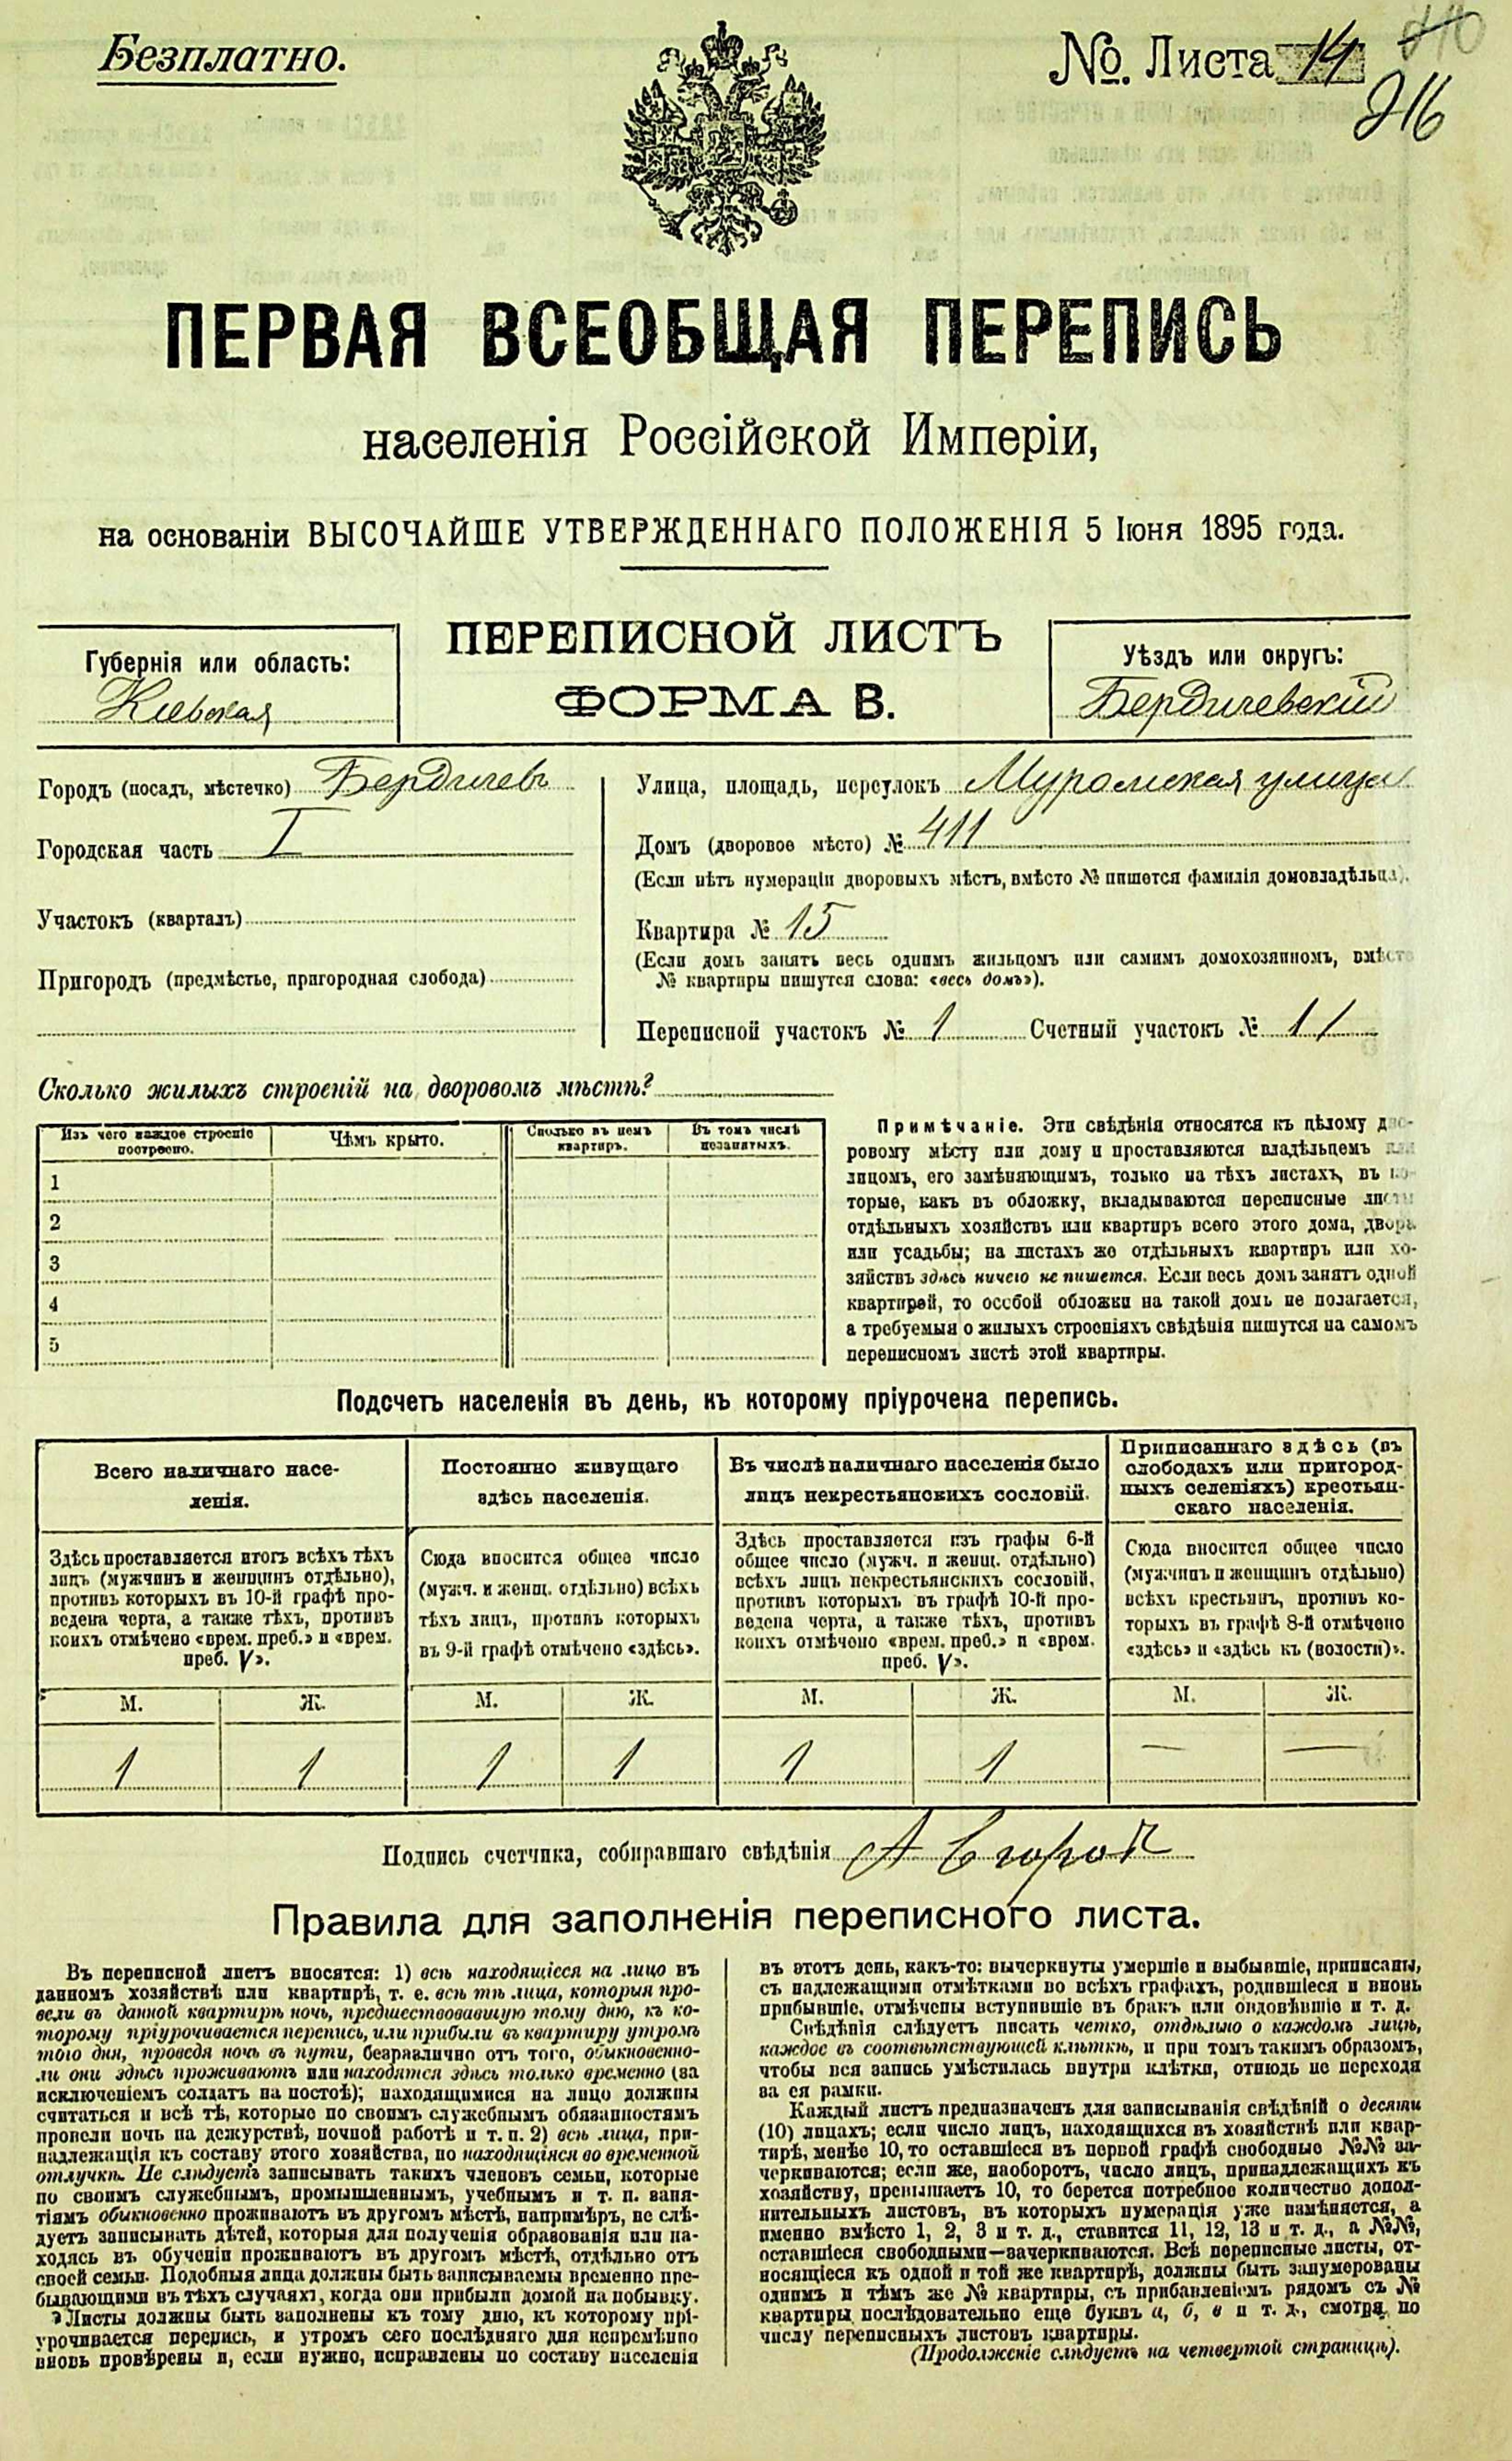 Безплатно.
№. Листа 14
216
ПЕРВАЯ ВСЕОБЩАЯ ПЕРЕПИСЬ
населенія Россійской Имперіи,
на основаніи ВЫСОЧАЙШЕ УТВЕРЖДЕННАГО ПОЛОЖЕНІЯ 5 Іюня 1895 года.
ПЕРЕПИСНОЙ ЛИСТЪ
ФОРМА В.
Губернія или область:
Кіевская
Уѣздъ или округъ:
Бердичевскій
Городъ (посадъ, мѣстечко) Бердичевъ
Городская часть I
Участокъ (кварталъ)
Пригородъ (предмѣстье, пригородная слобода)
Улица, площадь, переулокъ Муромская улица
Домъ (дворовое мѣсто) № 411
(Если нѣтъ нумераціи дворовыхъ мѣстъ, вмѣсто № пишется фамилія домовладѣльца).
Квартира № 15
(Если домъ занятъ весь однимъ жильцомъ или самимъ домохозяиномъ, вмѣсто
№ квартиры пишутся слова: «весь домъ»).
Переписной участокъ № 1 Счетный участокъ № 11
Сколько жилыхъ строеній на дворовомъ мѣстѣ?
Изъ чего каждое строеніе
построено.
Чѣмъ крыто.
Сколько въ немъ
квартиръ.
Въ томъ числѣ
незанятыхъ.
1
2
3
4
5
Примѣчаніе. Эти свѣдѣнія относятся къ цѣлому дво-
ровому мѣсту или дому и проставляются владѣльцемъ или
лицомъ, его замѣняющимъ, только на тѣхъ листахъ, въ ко-
торые, какъ въ обложку, вкладываются переписные листы
отдѣльныхъ хозяйствъ или квартиръ всего этого дома, двора
или усадьбы; на листахъ же отдѣльныхъ квартиръ или хо-
зяйствъ здѣсь ничего не пишется. Если весь домъ занятъ одной
квартирой, то особой обложки на такой домъ не полагается,
а требуемыя о жилыхъ строеніяхъ свѣдѣнія пишутся на самомъ
переписномъ листѣ этой квартиры.
Подсчетъ населенія въ день, къ которому пріурочена перепись.
Всего наличнаго насе-
ленія.
Постоянно живущаго
здѣсь населенія.
Въ числѣ наличнаго населенія было
лицъ некрестьянскихъ сословій.
Приписаннаго здѣсь (въ
слободахъ или пригород-
ныхъ селеніяхъ) крестьян-
скаго населенія.
Здѣсь проставляется итогъ всѣхъ тѣхъ
лицъ (мужчинъ и женщинъ отдѣльно),
противъ которыхъ въ 10-й графѣ про-
ведена черта, а также тѣхъ, противъ
коихъ отмѣчено «врем. преб.» и «врем.
преб. V».
Сюда вносится общее число
(мужч. и женщ. отдѣльно) всѣхъ
тѣхъ лицъ, противъ которыхъ
въ 9-й графѣ отмѣчено «здѣсь».
Здѣсь проставляется изъ графы 6-й
общее число (мужч. и женщ. отдѣльно)
всѣхъ лицъ некрестьянскихъ сословій,
противъ которыхъ въ графѣ 10-й про-
ведена черта, а также тѣхъ, противъ
коихъ отмѣчено «врем. преб.» и «врем.
преб. V».
Сюда вносится общее число
(мужчинъ и женщинъ отдѣльно)
всѣхъ крестьянъ, противъ ко-
торыхъ въ графѣ 8-й отмѣчено
«здѣсь» и «здѣсь къ (волости)».
М. Ж. М. Ж. М. Ж. М. Ж.
1 1 1 1 1 1 — —
Подпись счетчика, собиравшаго свѣдѣнія
Правила для заполненія переписного листа.
Въ переписной листъ вносятся: 1) всѣ находящіеся на лицо въ
данномъ хозяйствѣ или квартирѣ, т. е. всѣ тѣ лица, которыя про-
вели въ данной квартирѣ ночь, предшествовавшую тому дню, къ ко-
торому пріурочивается перепись, или прибыли въ квартиру утромъ
того дня, проведя ночь въ пути, безразлично отъ того, обыкновенно-
ли они здѣсь проживаютъ или находятся здѣсь только временно (за
исключеніемъ солдатъ на постоѣ); находящимися на лицо должны
считаться и всѣ тѣ, которые по своимъ служебнымъ обязанностямъ
провели ночь на дежурствѣ, ночной работѣ и т. п. 2) всѣ лица, при-
надлежащія къ составу этого хозяйства, но находящіяся во временной
отлучкѣ. Не слѣдуетъ записывать такихъ членовъ семьи, которые
по своимъ служебнымъ, промышленнымъ, учебнымъ и т. п. заня-
тіямъ обыкновенно проживаютъ въ другомъ мѣстѣ, напримѣръ, не слѣ-
дуетъ записывать дѣтей, которыя для полученія образованія или на-
ходясь въ обученіи проживаютъ въ другомъ мѣстѣ, отдѣльно отъ
своей семьи. Подобныя лица должны быть записываемы временно пре-
бывающими въ тѣхъ случаяхъ, когда они прибыли домой на побывку.
Листы должны быть заполнены къ тому дню, къ которому прі-
урочивается перепись, и утромъ сего послѣдняго дня непремѣнно
вновь провѣрены и, если нужно, исправлены по составу населенія
въ этотъ день, какъ-то: вычеркнуты умершіе и выбывшіе, приписаны,
съ надлежащими отмѣтками во всѣхъ графахъ, родившіеся и вновь
прибывшіе, отмѣчены вступившіе въ бракъ или овдовѣвшіе и т. д.
Свѣдѣнія слѣдуетъ писать четко, отдѣльно о каждомъ лицѣ,
каждое въ соотвѣтствующей клѣткѣ, и при томъ такимъ образомъ,
чтобы вся запись умѣстилась внутри клѣтки, отнюдь не переходя
за ея рамки.
Каждый листъ предназначенъ для записыванія свѣдѣній о десяти
(10) лицахъ; если число лицъ, находящихся въ хозяйствѣ или квар-
тирѣ, менѣе 10, то оставшіеся въ первой графѣ свободные №№ за-
черкиваются; если же, наоборотъ, число лицъ, принадлежащихъ къ
хозяйству, превышаетъ 10, то берется потребное количество допол-
нительныхъ листовъ, въ которыхъ нумерація уже измѣняется, а
именно вмѣсто 1, 2, 3 и т. д., ставится 11, 12, 13 и т. д., а №№,
оставшіеся свободными—зачеркиваются. Всѣ переписные листы, от-
носящіеся къ одной и той же квартирѣ, должны быть занумерованы
однимъ и тѣмъ же № квартиры, съ прибавленіемъ рядомъ съ №
квартиры послѣдовательно еще буквъ а, б, в и т. д., смотря по
числу переписныхъ листовъ квартиры.
(Продолженіе слѣдуетъ на четвертой страницѣ).